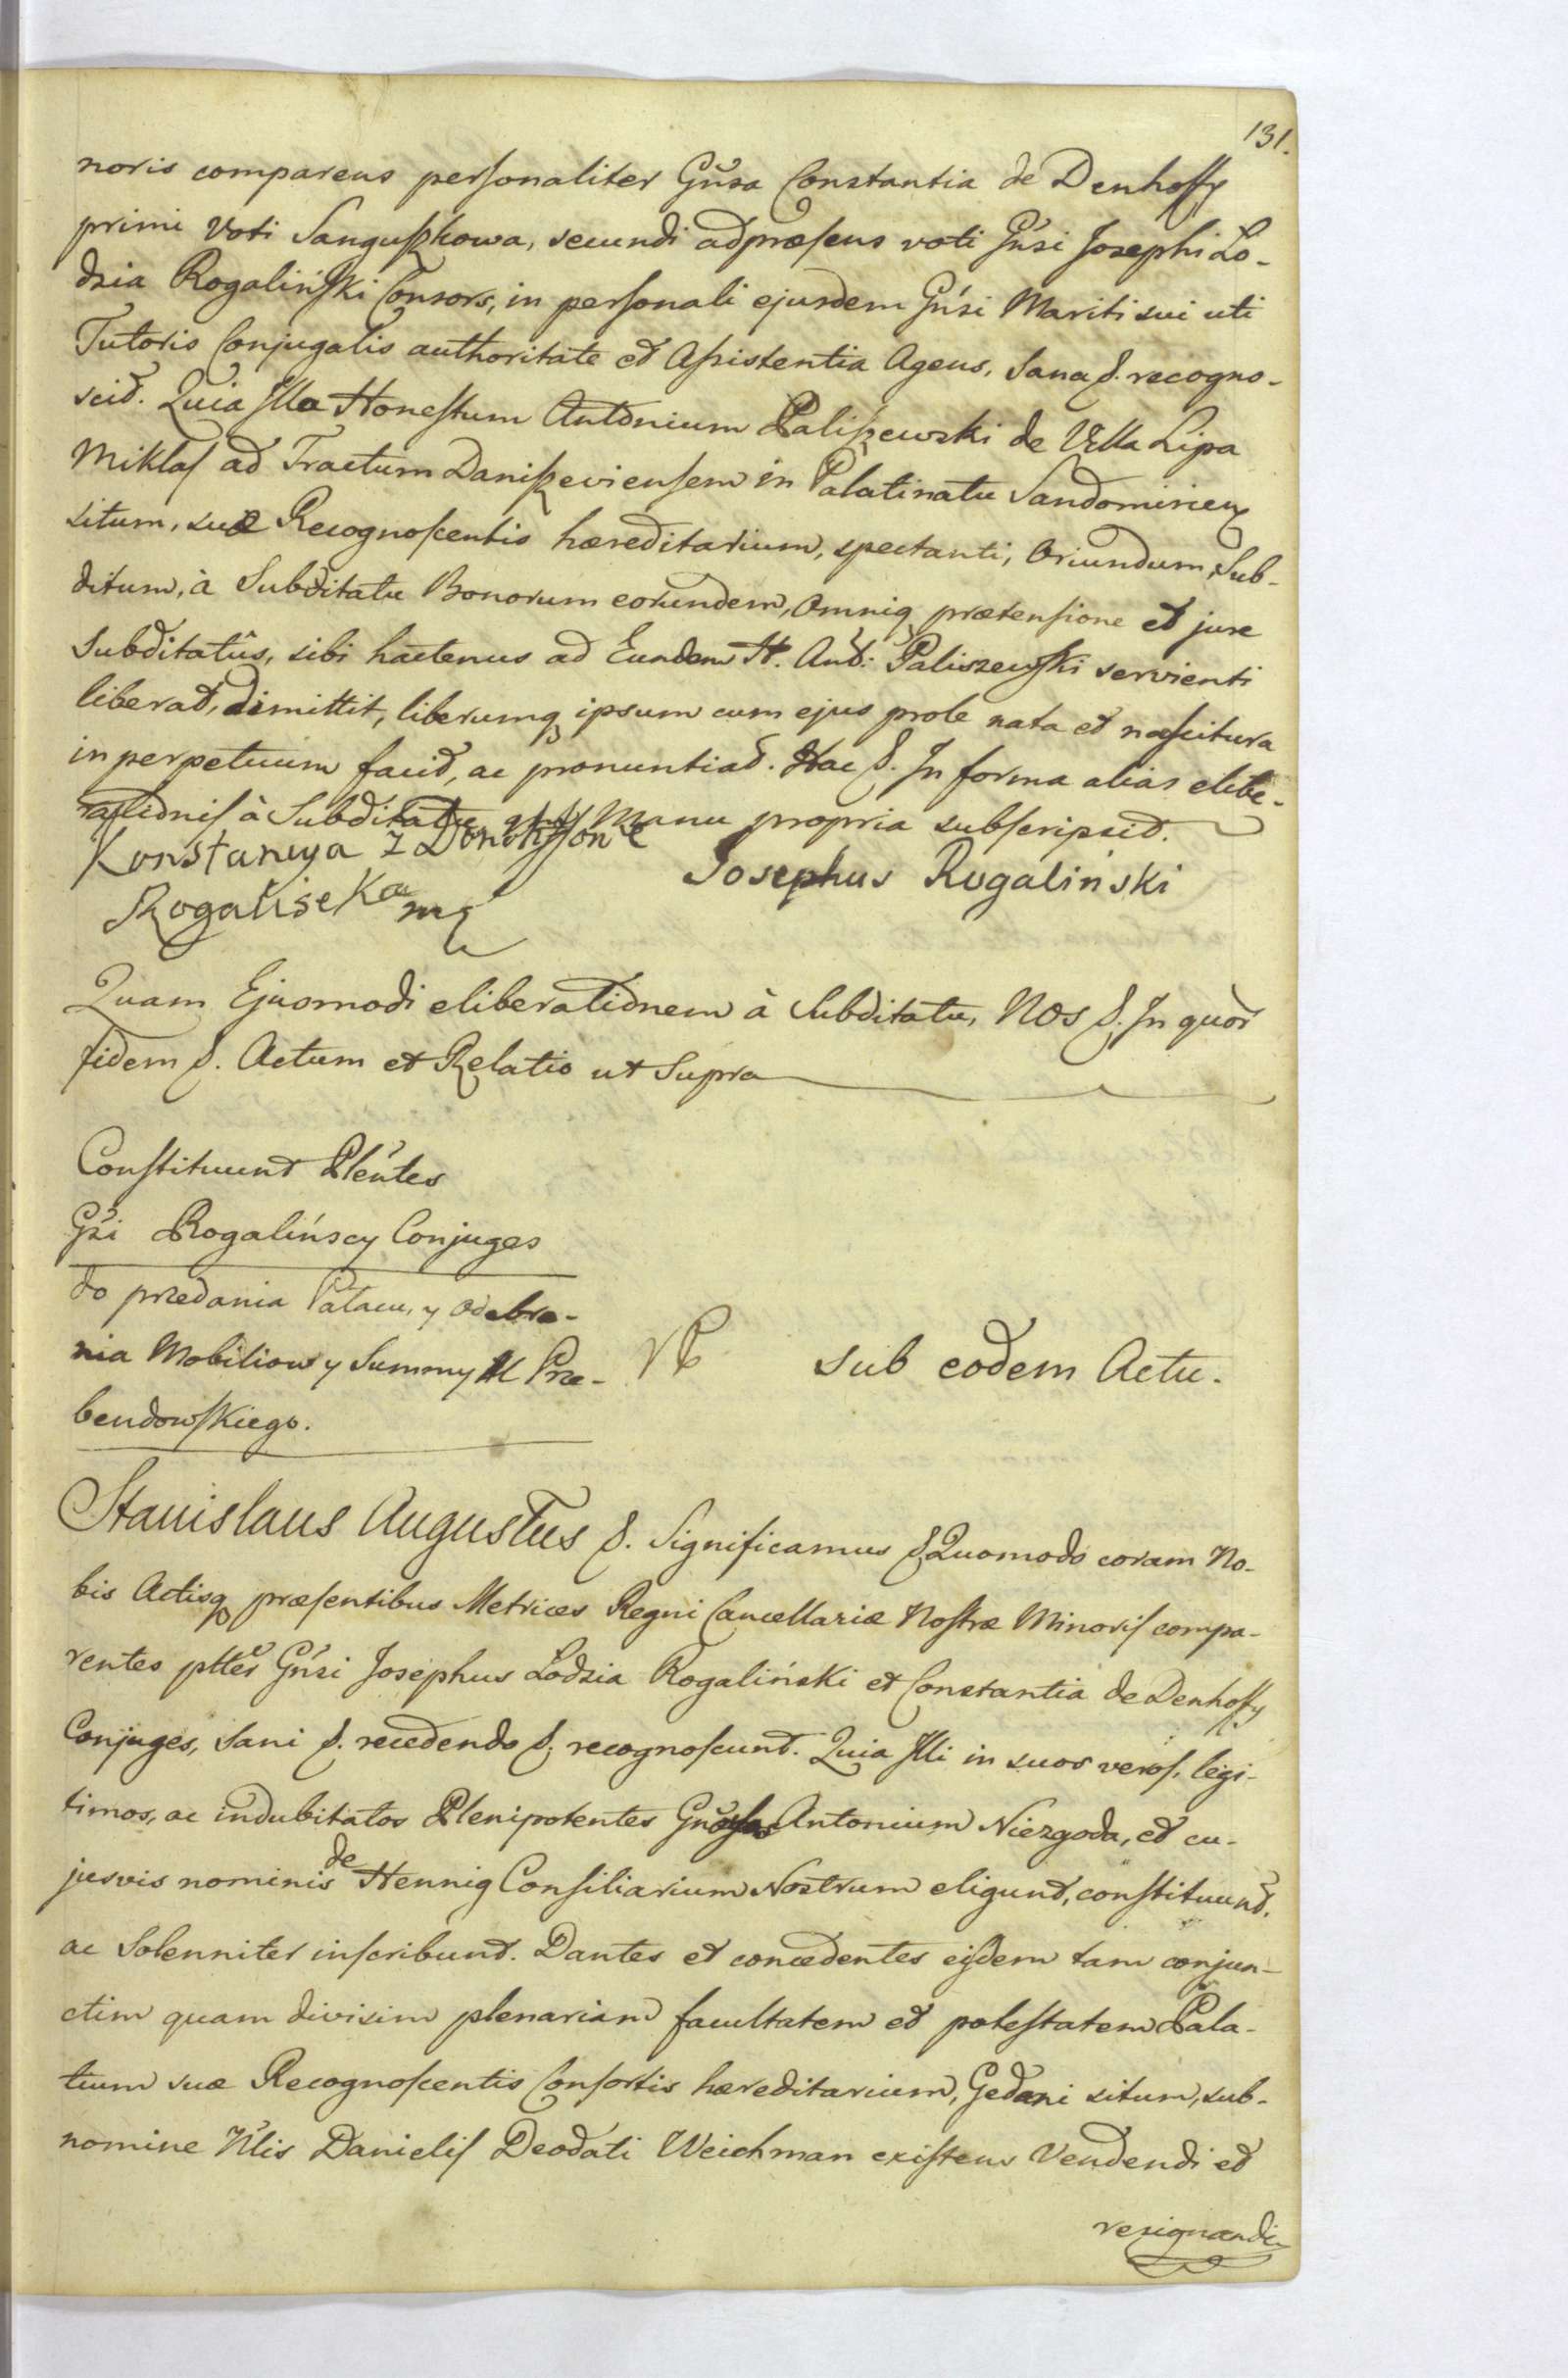 131.
noris comparens personaliter Gńsa Constantia de Denhoffy
primi Voti Sanguszkowa, secundi ad præsens voti Gńsi Josephi Lo-
dzia Rogaliński Consors, in personali ejusdem Gńsi Mariti sui uti
Tutoris Conjugalis authoritate et Assistentia Agens, Sana &. recogno-
scit. Quia Illa Honestum Antonium Paliszewski de Villa Lipa
Miklas ad Tractum Daniszeviensem in Palatinatu Sandomirien
situm, suæ Recognoscentis hæreditarium, spectanti, Oriundum, Sub-
ditum, à Subditatu Bonorum eorundem, Omniq prætensione et jure
Subditatûs, sibi hactenus ad Eundem H. Ant: Paliszewski servienti
liberat, dimittit, liberumq ipsum cum ejus prole nata et nascitura
in perpetuum facit, ac pronuntiat. Hac &. In forma alias elibe-
rationis à Subditatu Manu propria subscripsit.
Konstancya z Donhoffow
Rogalińska mp
Josephus Rogaliński
Quam Ejusmodi eliberationem à Subditatu, Nos &. In quor
fidem &. Actum et Relatio ut Supra
Constituunt Pleńtes
Gńi Rogalińscy Conjuges
do przedania Pałacu, y odebra-
nia Mobiliow y Summy U Prze-
bendowskiego.
sub eodem Actu.
Stanislaus Augustus &. Significamus &. Quomodo coram No-
bis Actisq præsentibus Metrices Regni Cancellariæ Nostræ Minoris compa-
rentes pltter Gńsi Josephus Lodzia Rogaliński et Constantia de Denhoffy
Conjuges, Sani &. recedendo &. recognoscunt. Quia Illi in suos veros, legi-
timos, ac indubitatos Plenipotentes Gńosos Antonium Niezgoda, et cu-
jusvis nominis de Hennig Consiliarium Nostrum eligunt, constituunt,
ac Solenniter inscribunt. Dantes et concedentes eisdem tam conjun-
ctim quam divisim plenariam facultatem et potestatem Pala-
tium suæ Recognoscentis Consortis hæreditarium, Gedani situm, sub-
nomine Nlis Danielis Deodati Weichman existens Vendendi et
resignandi